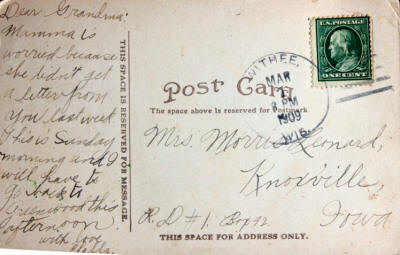 Dear Grandma:
Mamma is
worried because
she didn't get
a letter from
you last week
This is Sunday
morning and I
will have to
go back to
Greenwood this
afternoon
with love
THIS SPACE IS RESERVED FOR MESSAGE.
Post Card
The space above is reserved for Postmark
WITHEE,
MAR
1
PM
1909
WIS.
U.S. POSTAGE
ONE CENT
Mrs. Morris Leonard,
Knoxville,
Iowa
R.D #1. Box 92
THIS SPACE FOR ADDRESS ONLY.